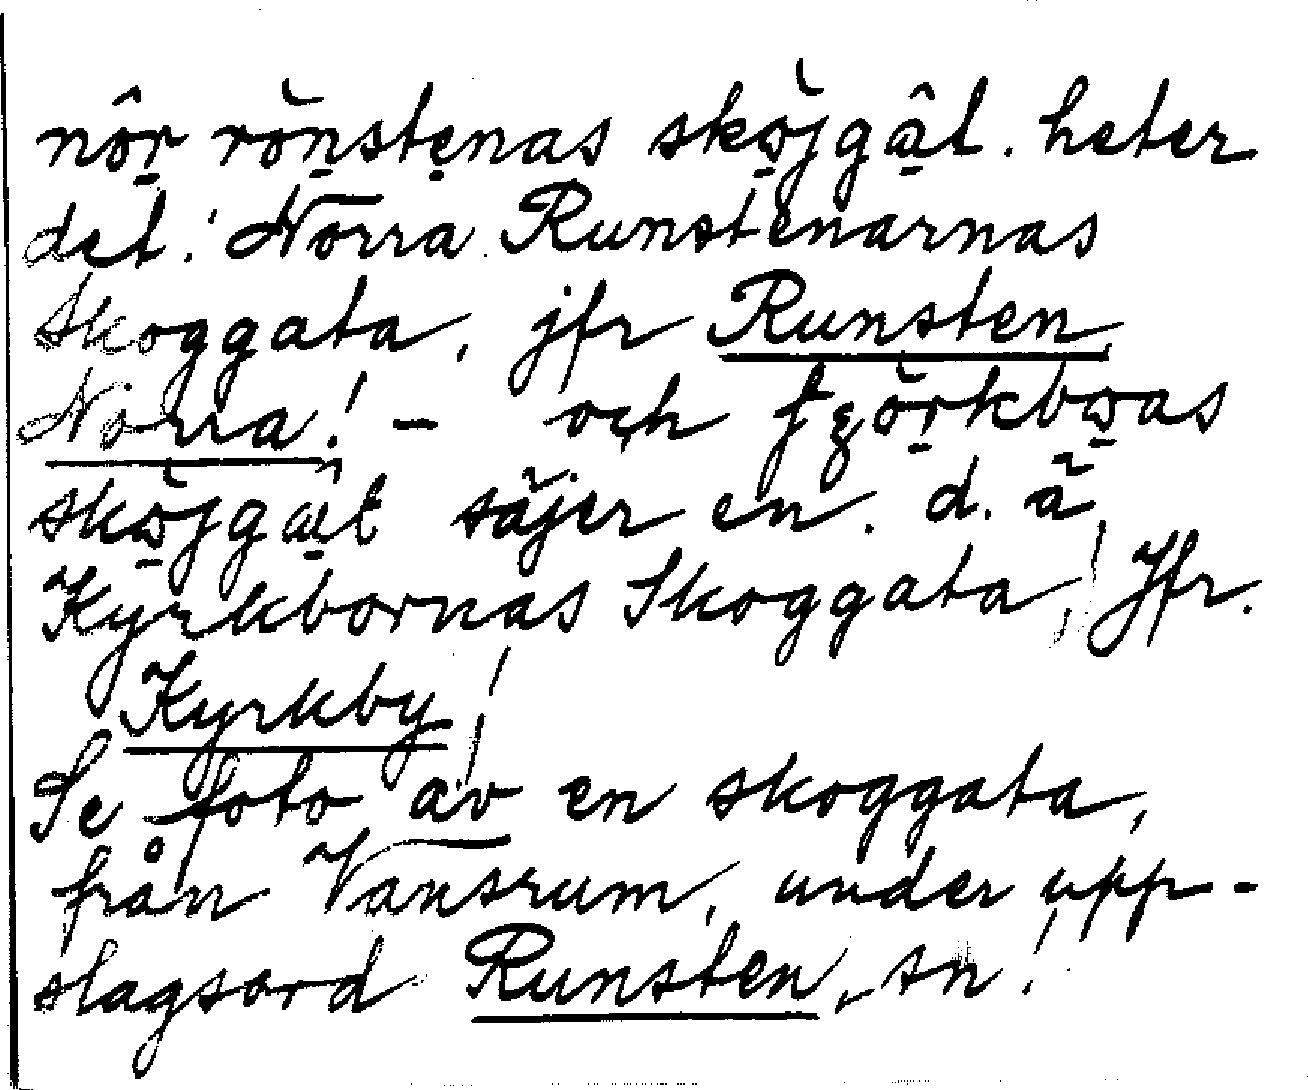 nôr rŏnstenas skŏjgât. heter
det! Norra Runstenarnas
Skoggata, jfr Runsten,
Norra! - och
skŏjgât säjer en. d. ä.
Kyrkbornas Skoggata! Jfr.
Kyrkby!
Se foto av en skoggata,
från Vansrum, under upp-
slagsord Runsten, sn!